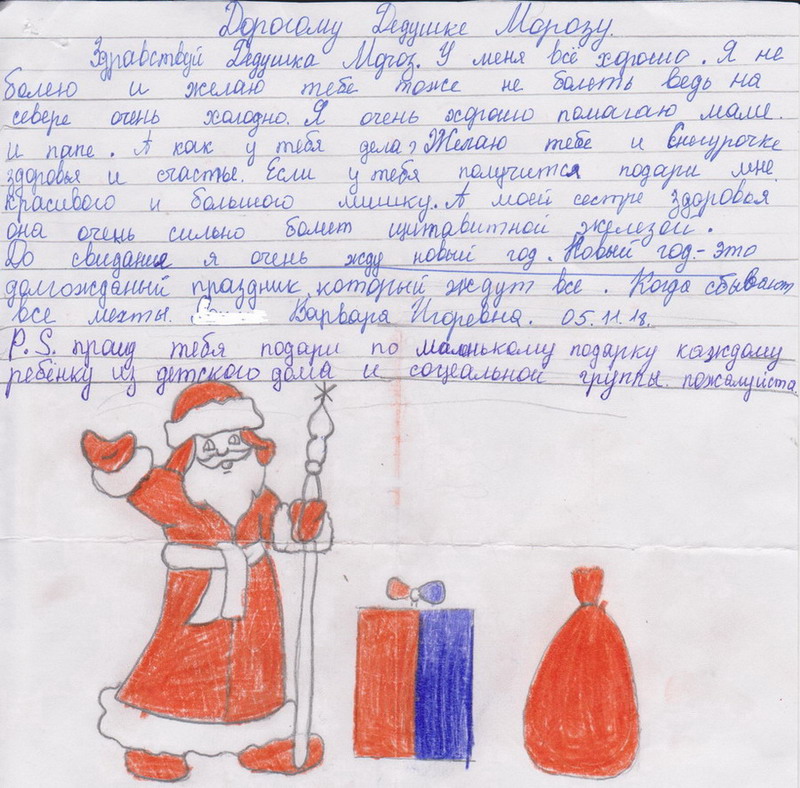 Дорогому Дедушке Морозу.
Здравствуй Дедушка Мороз. У меня всё хорошо. Я не
болею и желаю тебе тоже не болеть ведь на
севере очень холодно. Я очень хорошо помагаю маме
и папе. А как у тебя дела? Желаю тебе и Снегурочке
здоровья и счастье. Если у тебя получится подари мне
красивого и большого мишку. А моей сестре здоровья
она очень сильно болет щитавитной железой.
До свидания я очень жду новый год. Новый год - это
долгожданый праздник который ждут все. Когда сбывают
все мечты. Варвара Игоревна. 05.11.18.
P.S. прошу тебя подари по маленькому подарку каждому
ребёнку из детского дома и социальной группы. пожалуйста.